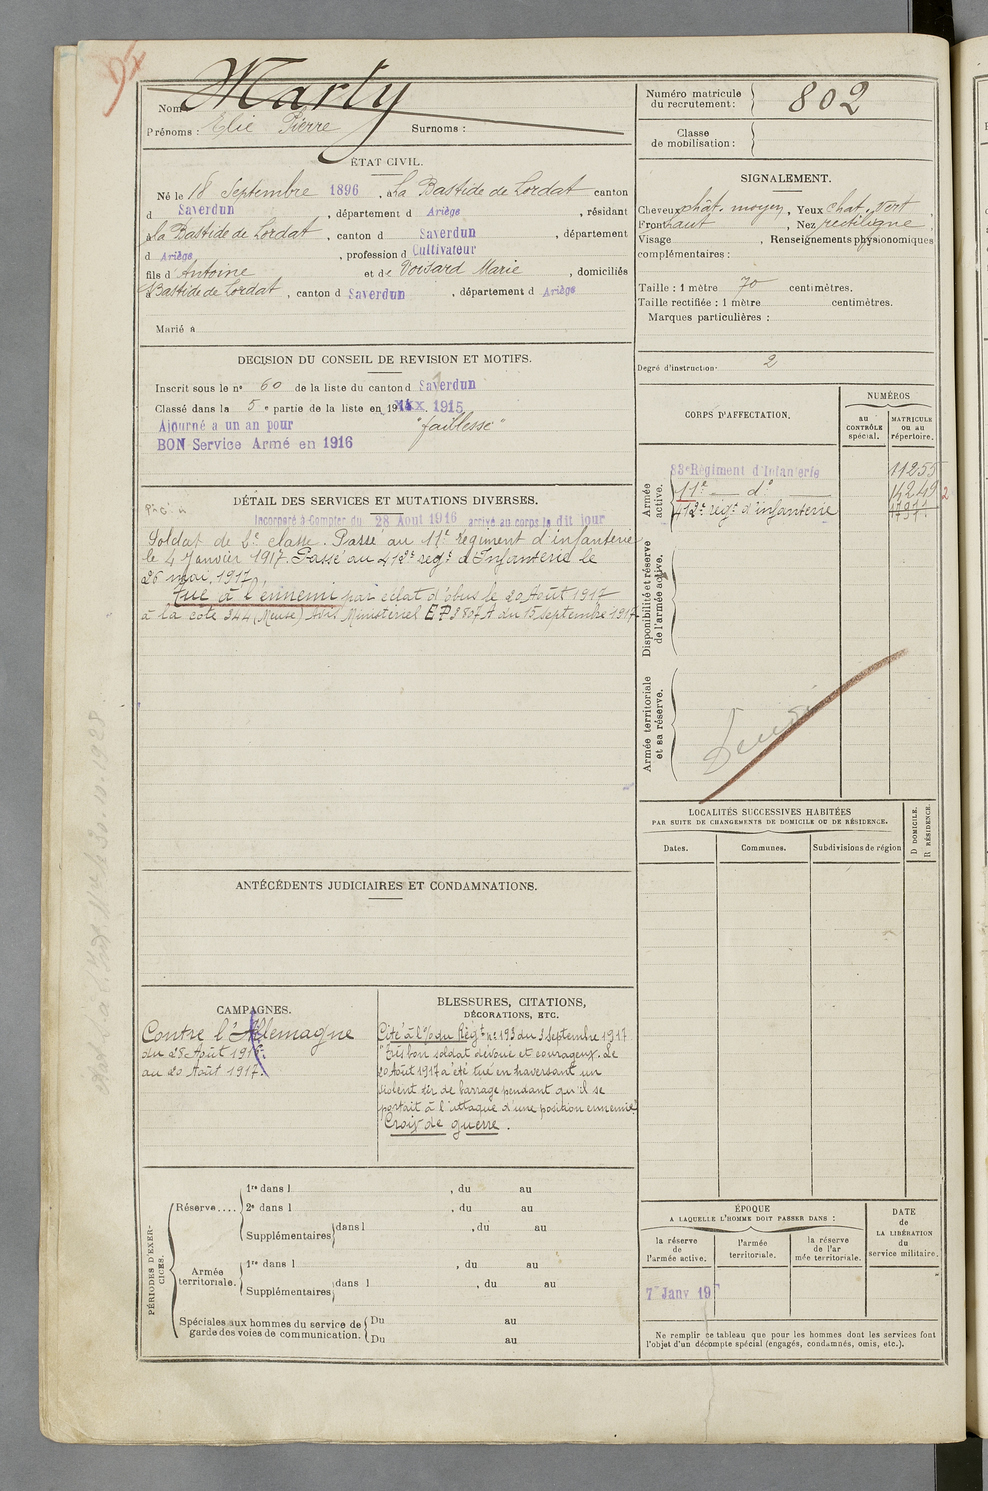 Nom Marty
Prénoms : Elie Pierre Surnoms :
ÉTAT CIVIL.
Né le 18 Septembre 1896, à La Bastide de Lordat canton
d Saverdun, département d Ariège, résidant
à la Bastide de Lordat, canton d Saverdun, département
d Ariège, profession d Cultivateur
fils d'Antoine et de Voisard Marie, domiciliés
à Bastide de Lordat, canton d Saverdun, département d Ariège
Marié à
DECISION DU CONSEIL DE REVISION ET MOTIFS.
Inscrit sous le nº 60 de la liste du canton d Saverdun
Classé dans la 5e partie de la liste en 1915
Ajourné a un an pour "faiblesse"
BON Service Armé en 1916
DÉTAIL DES SERVICES ET MUTATIONS DIVERSES.
Incorporé à Compter du 28 Aout 1916 arrivé au corps le dit jour
Soldat de 2e classe. Passé au 11e régiment d'infanterie
le 4 Janvier 1917. Passé au 412e regt d'Infanterie le
26 mai, 1917.
Tué à l'ennemi par éclat d'obus le 20 Août 1917
à la cote 344 (Meuse) Avis Ministériel du 15 septembre 1917
ANTÉCÉDENTS JUDICIAIRES ET CONDAMNATIONS.
CAMPAGNES.
Contre l'Allemagne
du 28 Août 1916.
au 20 Août 1917.
BLESSURES, CITATIONS,
DÉCORATIONS, ETC.
Cité à l'o/ du Régt nº 193 du 3 Septembre 1917
"Très bon soldat dévoué et courageux. Le
20 Août 1917 a été tué en traversant un
violent tir de barrage pendant qu'il se
portait à l'attaque d'une position ennemie."
Croix de guerre.
PÉRIODES D'EXERCICES.
Réserve....
1re dans l , du au
2e dans l , du au
Supplémentaires dans l , du au
Armée territoriale.
1re dans l , du au
Supplémentaires dans l , du au
Spéciales aux hommes du service de garde des voies de communication.
Du au
Du au
Numéro matricule du recrutement : 802
Classe de mobilisation :
SIGNALEMENT.
Cheveux chât. moyen, Yeux chat. vert,
Front haut, Nez rectiligne,
Visage , Renseignements physionomiques
complémentaires :
Taille : 1 mètre 70 centimètres.
Taille rectifiée : 1 mètre centimètres.
Marques particulières :
Degré d'instruction : 2
CORPS D'AFFECTATION.
NUMÉROS
au CONTRÔLE spécial.
MATRICULE ou au répertoire.
Armée active.
83e Régiment d'Infanterie 11255
11e dº 14249
412e régt d'infanterie
Disponibilité et réserve de l'armée active.
Armée territoriale et sa réserve.
LOCALITÉS SUCCESSIVES HABITÉES
PAR SUITE DE CHANGEMENTS DE DOMICILE OU DE RÉSIDENCE.
D DOMICILE.
R RÉSIDENCE.
Dates. Communes. Subdivisions de région
ÉPOQUE
A LAQUELLE L'HOMME DOIT PASSER DANS :
la réserve de l'armée active.
l'armée territoriale.
la réserve de l'armée territoriale.
DATE de LA LIBÉRATION du service militaire.
7 Janv 19
Ne remplir ce tableau que pour les hommes dont les services font
l'objet d'un décompte spécial (engagés, condamnés, omis, etc.).